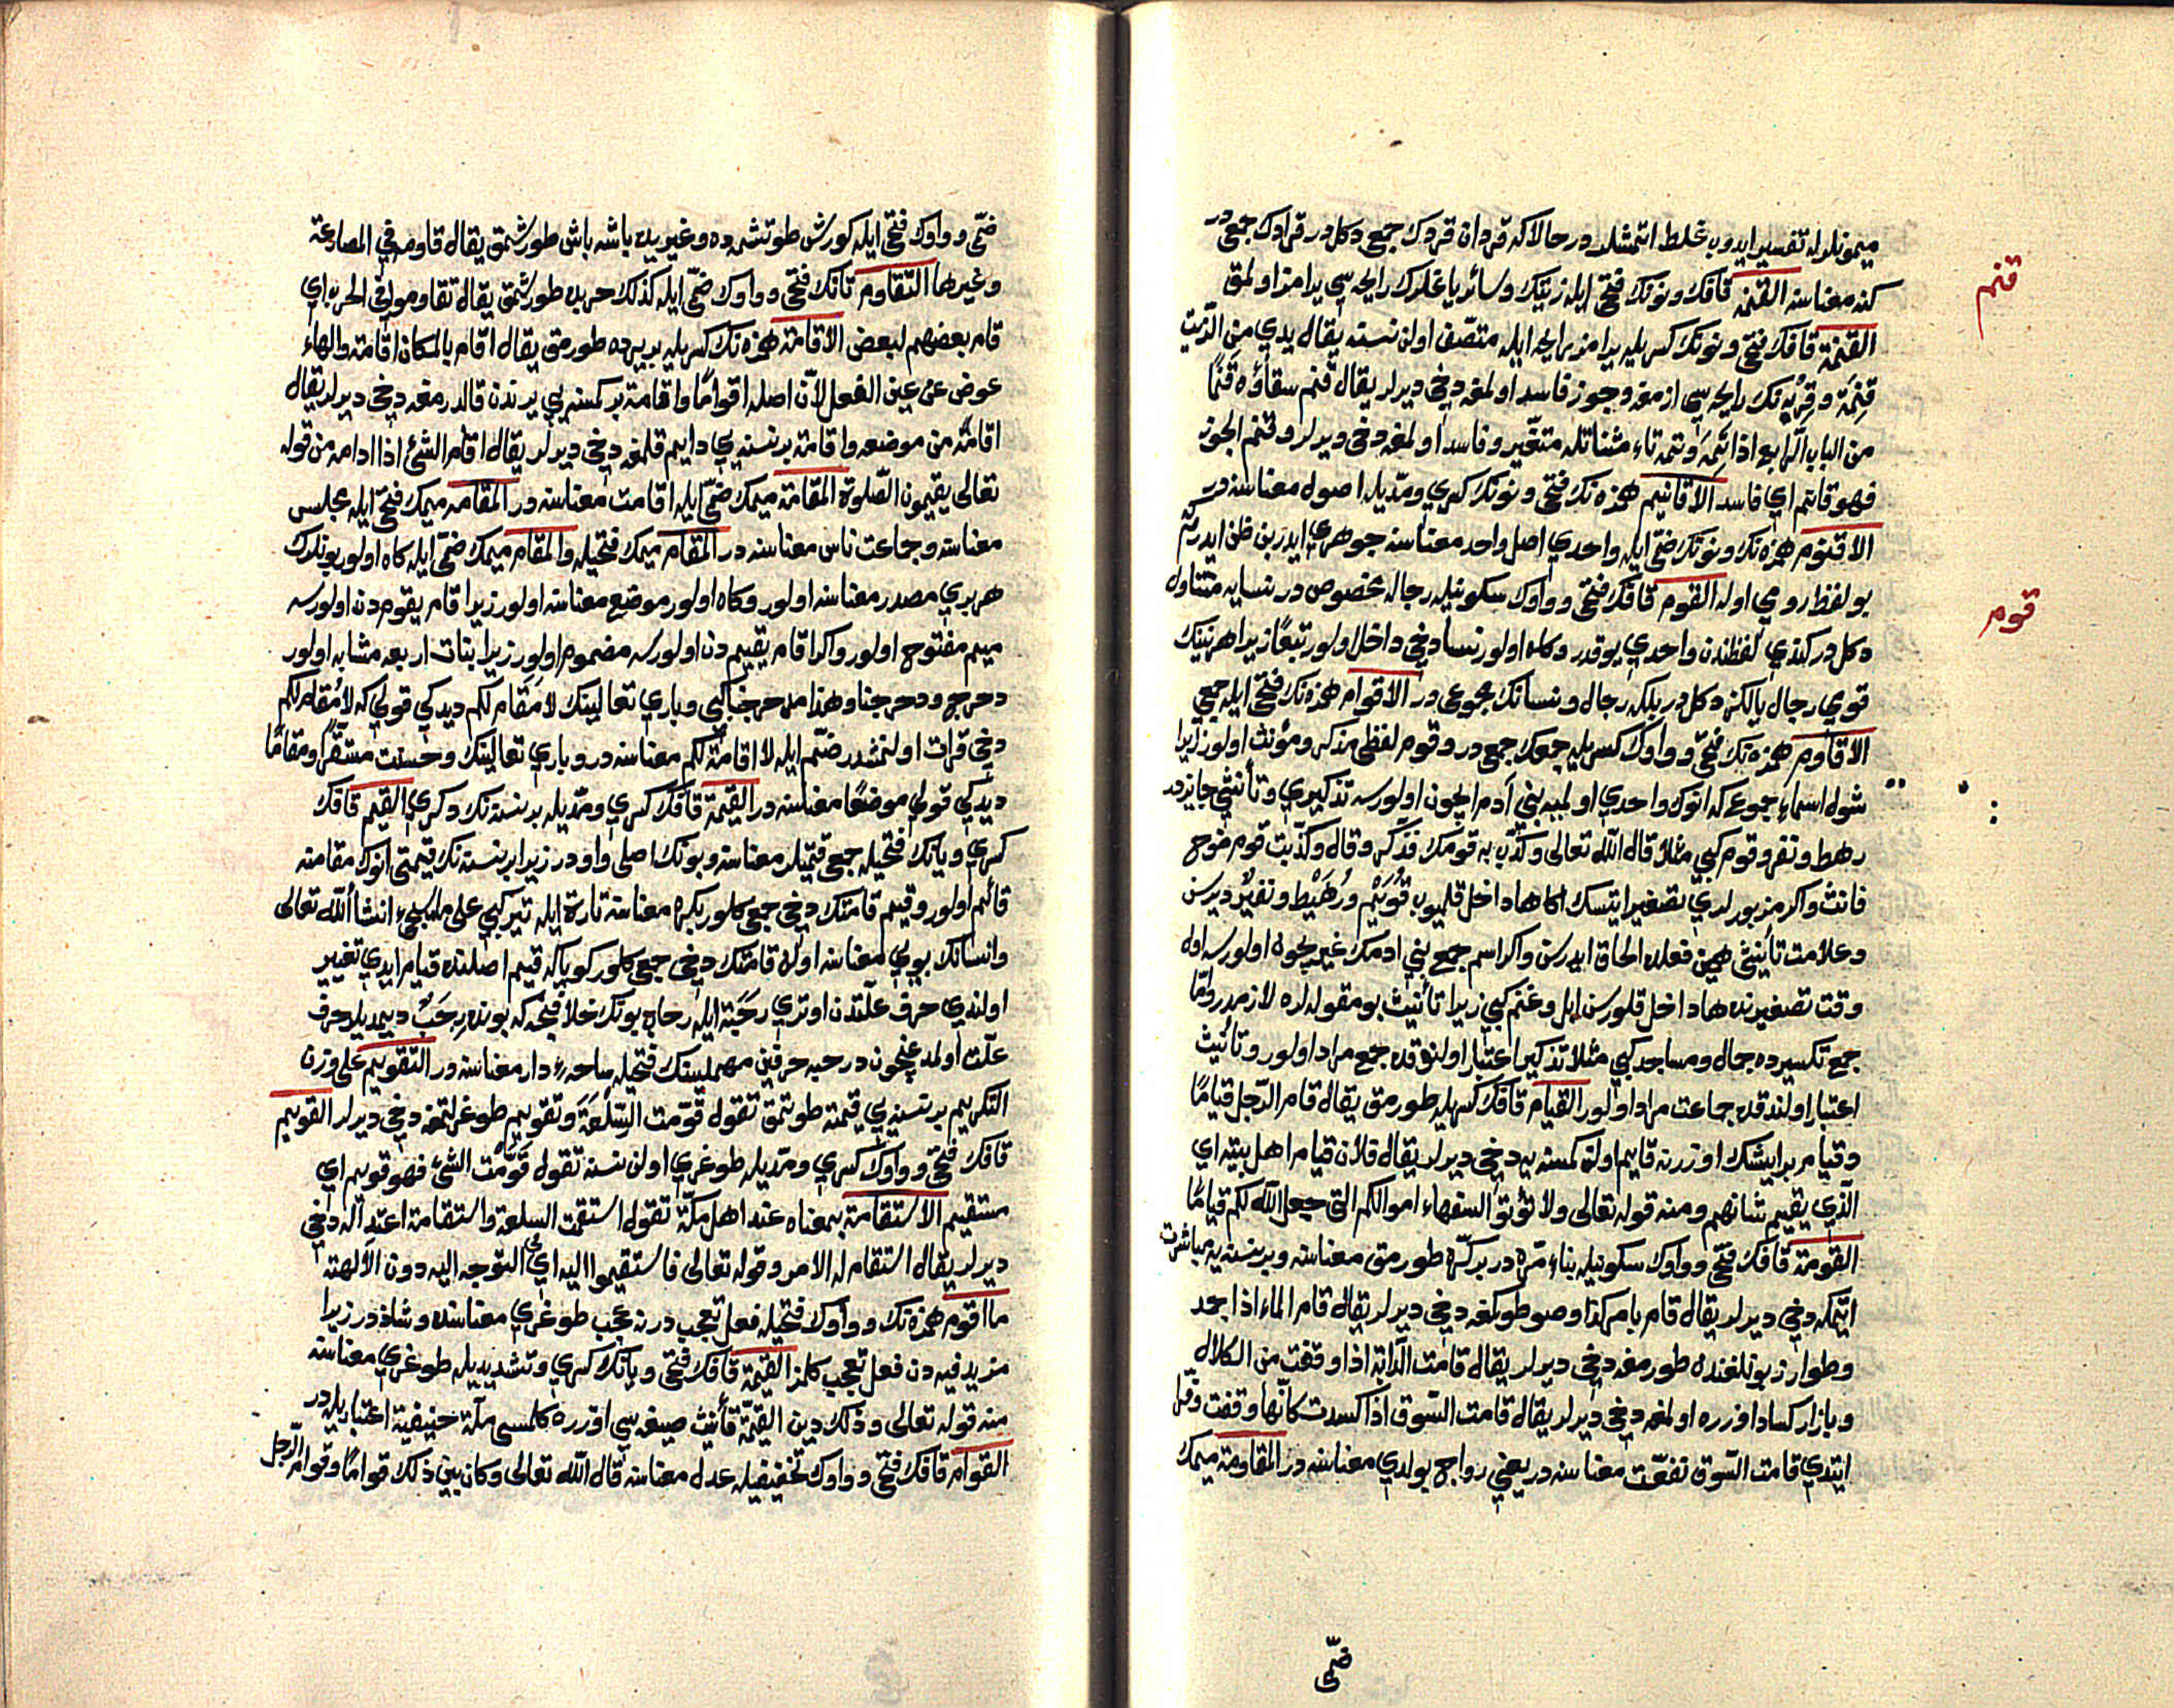 ميمونلرله تفسير ايدوب غلط اتمشلدر حالاكه قردان قردك جمعى دكلدر قرادك جمعى در
قنم
كنه معناسنه القنمة قافك ونونك فتحى ايله زيتك وسائر ياغلرك رايحه سى يرامز اولمق
القنمة قافك فتحى ونونك كسريله يرامز رايحه ايله متصف اولن نسنه يقال يدي من الزيت
قنمة وقربه نك رايحه سى ازمغه وجوز فاسد اولمغه دخى ديرلر يقال قنم سقاؤه قنما
من الباب الرابع اذا تمه وتمه تاء مثناتله متغير وفاسد اولمغه دخى ديرلر وقنم الجوز
فهو قانم اي فاسد الاقانيم همزه نك فتحى ونونك كسري ومديله اصول معناسنه در
الاقنوم همزه نك ونونك ضمى ايله واحدي اصل واحد معناسنه جوهري ايدر بن ظن ايدرم كه
بو لفظ رومي اوله القوم قافك فتحى وواوك سكونيله رجاله مخصوص در نسايه متناول
قوم
دكلدر كندي لفظندن واحدي يوقدر وكاه اولور نسا دخى داخل اولور تبعا زيرا هر نبينك
قومي رجال يالكز دكلدر بلكه رجال ونسانك مجموعى در الاقوام همزه نك فتحى ايله جمعى
الاقاوم همزه نك فتحى وواوك كسريله جمعك جمعى در وقوم لفظى مذكر ومؤنث اولور زيرا
شول اسماء جموع كه انوك واحدي اولميه بنى آدم ايچون اولورسه تذكيري وتأنيثى جايزدر
رهط ونفر وقوم كبى مثلا قال الله تعالى وكذب به قومك فذكر وقال وكذبت قوم نوح
فانث واكر مزبورلري تصغير ايتسك اكا ها داخل قلميوب قويم ورهيط ونفير ديرسن
وعلامت تأنيثى همين فعله الحاق ايدرسن واكر اسم جمع بنى ادمك غيريچون اولورسه اول
وقت تصغيرنده ها داخل قلورسن ابل وغنم كبى زيرا تأنيث بو مقوله لره لازمدر واما
جمع تكسيرده جمال ومساجد كبى مثلا تذكير اعتبار اولندوقده جمع مراد اولور وتأنيث
اعتبار اولندقده جماعت مراد اولور القيام قافك كسريله طورمق يقال قام الرجل قياما
وقيام بر ايشك اوزرنه قايم اولن كمسنه يه دخى ديرلر يقال فلان قيام اهل بيته اي
الذي يقيم شانهم ومنه قوله تعالى ولا تؤتوا السفهاء اموالكم التى جعل الله لكم قياما
القومة قافك فتحى وواوك سكونيله بناء مره در بر كره طورمق معناسنه وبر نسنه يه مباشرت
ايتمكه دخى ديرلر يقال قام بامر كذا وصو طوكمغه دخى ديرلر يقال قام الماء اذا جمد
وطوار زبونلغنده طورمغه دخى ديرلر يقال قامت الدابة اذا وقفت من الكلال
وبازار كساد اوزره اولمغه دخى ديرلر يقال قامت السوق اذا كسدت كانها وقفت وقل
ايتدي قامت السوق نفقت معناسنه در يعنى رواج بولدي معناسنه در المقاومة ميمك
ضمى
ضمى وواوك فتحى ايله كورش طوتشمده وغيريده باشه باش طورشمق يقال قاومه في المصارعة
وغيرها التقاوم تانك فتحى وواوك ضمى ايله كذلك حربده طورشمق يقال تقاوموا في الحرب اي
قام بعضهم لبعض الاقامة همزه نك كسريله بر يرده طورمق يقال اقام بالمكان اقامة والهاء
عوض عن عين الفعل لان اصله اقواما واقامة بر كمسنه يي يرندن قالدرمغه دخى ديرلر يقال
اقامة من موضعه واقامة بر نسنه يي دايم قلمغه دخى ديرلر يقال اقام الشئ اذا ادامه من قوله
تعالى يقيمون الصلوة المقامة ميمك ضمى ايله اقامت معناسنه در المقامه ميمك فتحى ايله مجلس
معناسنه وجماعت ناس معناسنه در المقام ميمك فتحيله والمقام ميمك ضمى ايله كاه اولور بونلرك
هر بري مصدر معناسنه اولور وكاه اولور موضع معناسنه اولور زيرا قام يقوم دن اولورسه
ميم مفتوح اولور واكر اقام يقيم دن اولورسه مضموم اولور زيرا بنات اربعه مشابه اولور
دحرج ودحرجنا وهذا مدحرجنا كبى وباري تعالينك لا مقام لكم ديدكى قولي كه لا مقام لكم
دخى قرات اولنمشدر ضم ايله لا اقامة لكم معناسنه در وباري تعالينك وحسنت مستقرا ومقاما
ديدكى قولي موضعا معناسنه در القيمة قافك كسري ومديله بر نسنه نك دكري القيم قافك
كسري ويانك فتحيله جمعى قيمتلر معناسنه وبونك اصلى واودر زيرا بر نسنه نك قيمتى انوك مقامنه
قائم اولور وقيم قامتك دخى جمعى كلور بكره معناسنه تارة ايله تير كبى على ما سيجئ انشأ الله تعالى
وانسانك بويي معناسنه اولن قامتك دخى جمعى كلور كوياكه قيم اصلنده قيام ايدي تغيير
اولندي حرف علتدن اوتري رحبة ايله رحاب بونك خلافنجه كه بونده رحب ديمديلر حرف
علت اولمدوغيچون در حبه حرفين مهملينك فتحيله ساحه ء دار معناسنه در التقويم على وزن
التكريم بر نسنه يي قيمته طوتمق تقول قومت السلعة وتقويم طوغرلتمغه دخى ديرلر القويم
قافك فتحى وواوك كسري ومديله طوغري اولن نسنه تقول قومت الشئ فهو قويم اي
مستقيم الاستقامة بمعناه عند اهل مكة تقول استقمت السلعة واستقامة اعتداله دخى
ديرلر يقال استقام له الامر وقوله تعالى فاستقيموا اليه اي في التوجه اليه دون الالهة
ما اقوم همزه نك وواوك فتحيله فعل تعجب در نه عجب طوغري معناسنده وشاذ در زيرا
مزيد فيه دن فعل تعجب كلمز القيمة قافك فتحى ويانك كسري وتشديديله طوغري معناسنه
منه قوله تعالى وذلك دين القيمة تأنيث صيغه سى اوزره كلمسى ملة حنيفية اعتباريله در
القوام قافك فتحى وواوك تخفيفيله عدل معناسنه قال الله تعالى وكان بين ذلك قواما وقوام الرجل